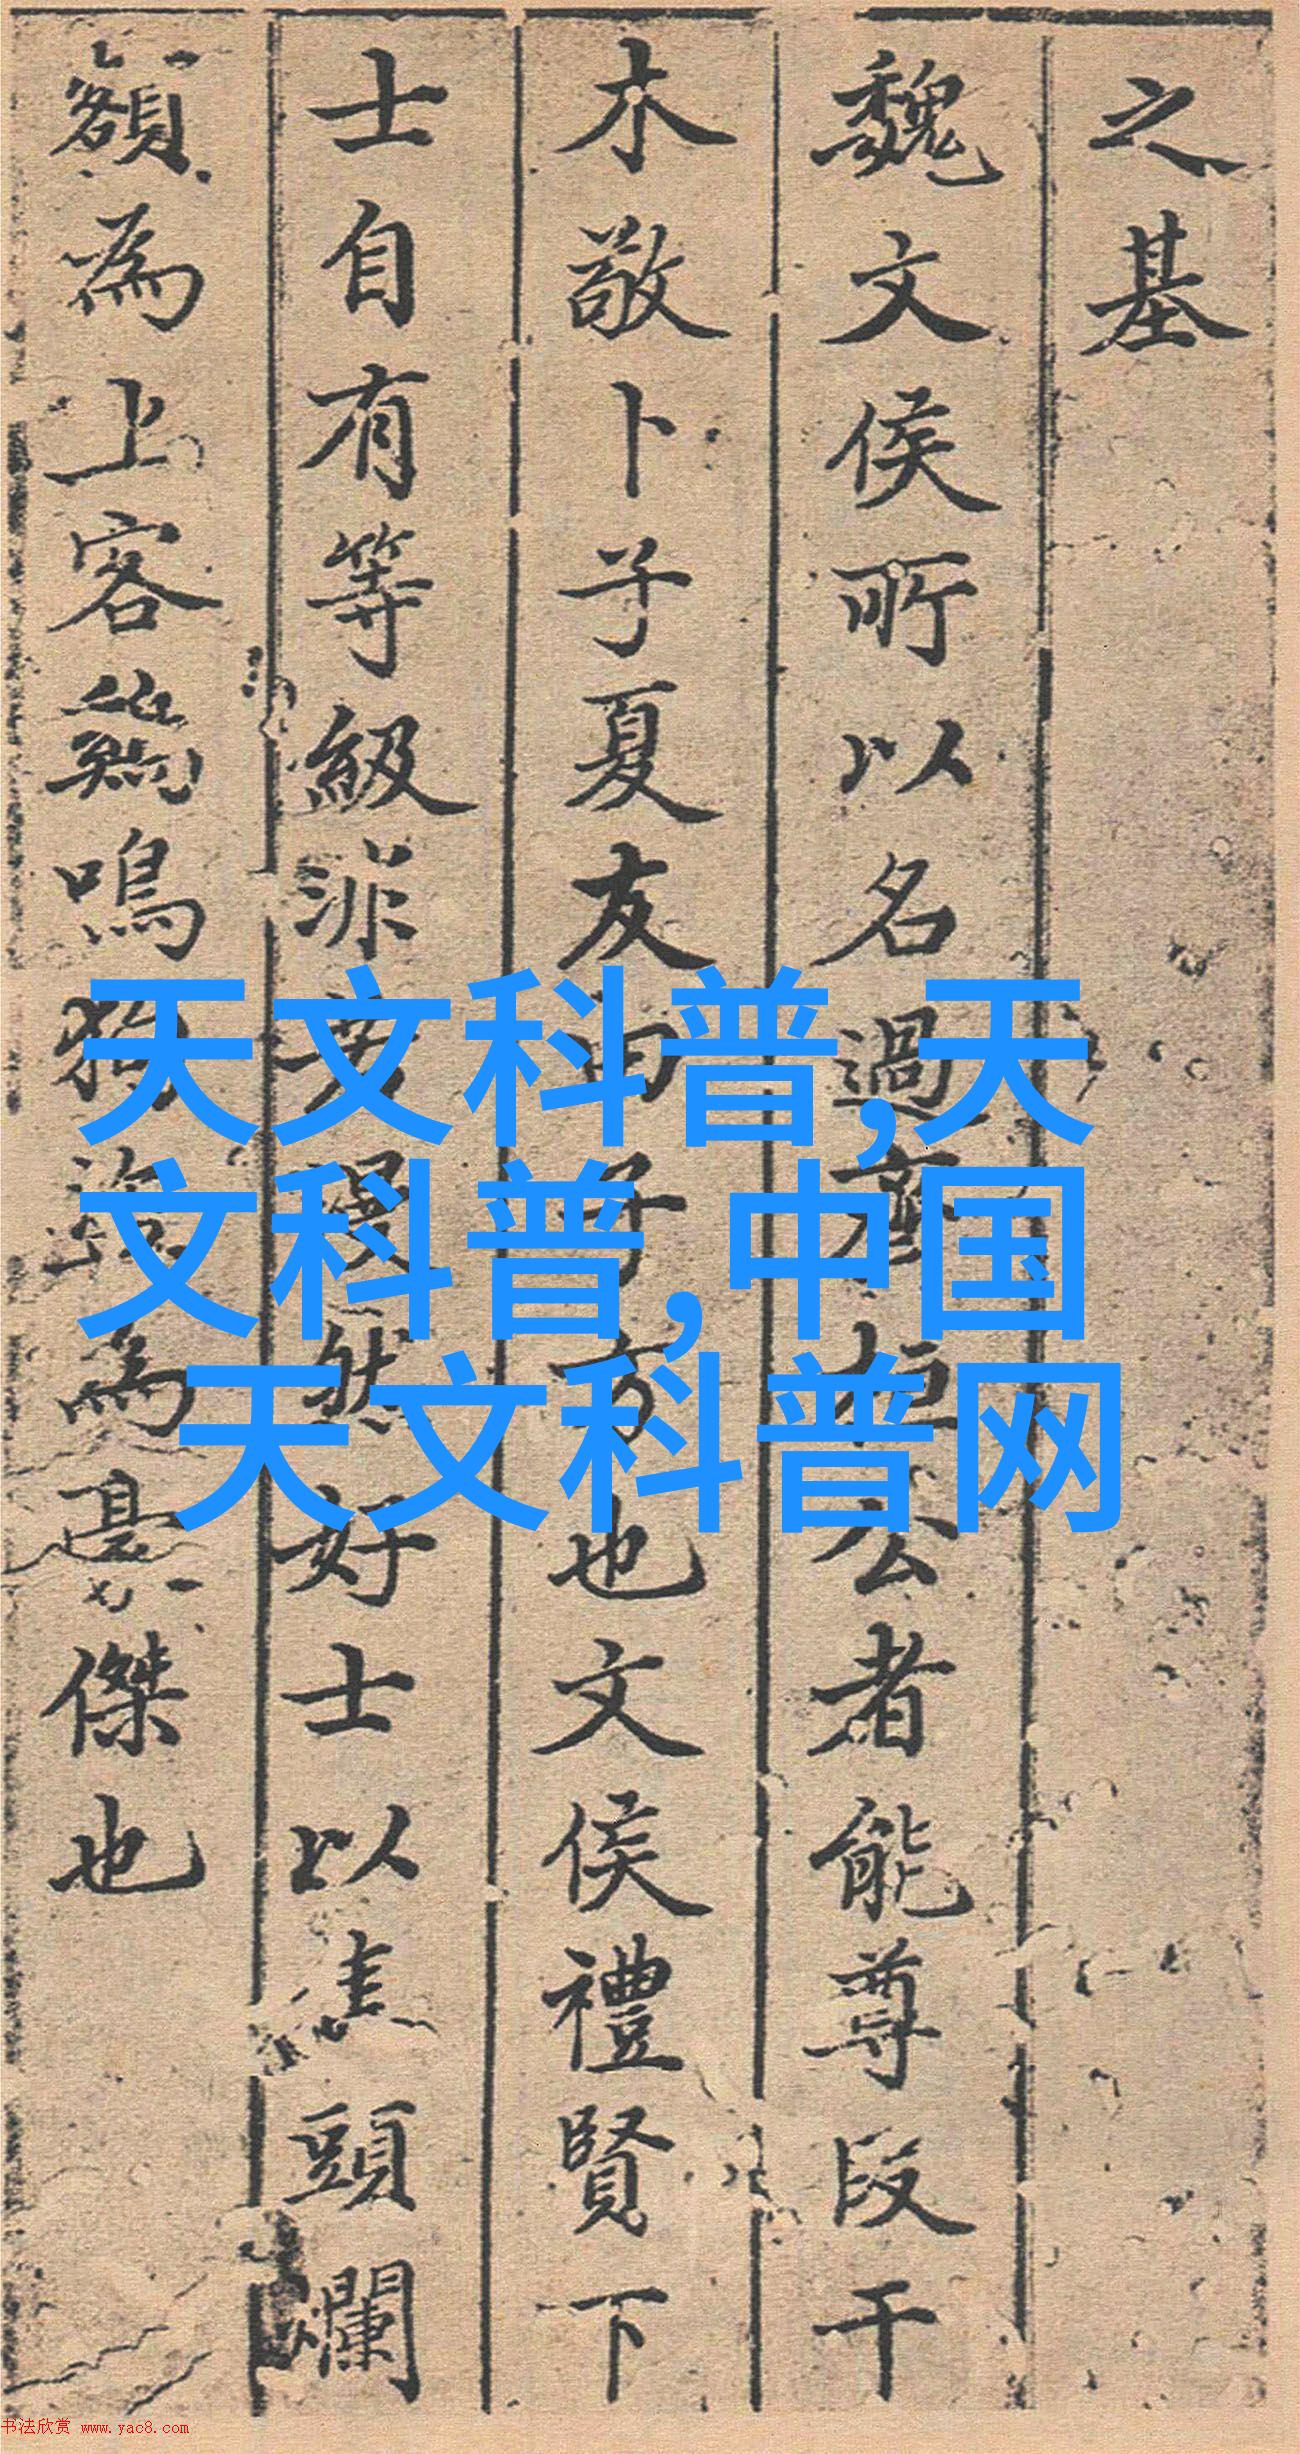 之基
魏文侯所以名過齊桓公者能尊段干
木敬卜子夏友田子方也文侯禮賢下
士自有等級非漫然好士以焦頭爛
額為上客雞鳴狗盜為豪傑也
天文科普,天
文科普,中国
天文科普网
书法欣赏 www.yac8.com